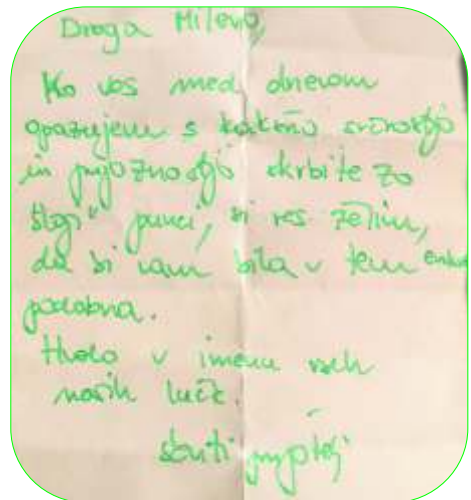 Draga Mileva,
Ko vas med dnevom
opazujem s kakšno srčnostjo
in prijaznostjo skrbite za
punci, si res želim,
da bi vam bila v tem enkrat
podobna.
Hvala v imenu vseh
naših lučk.